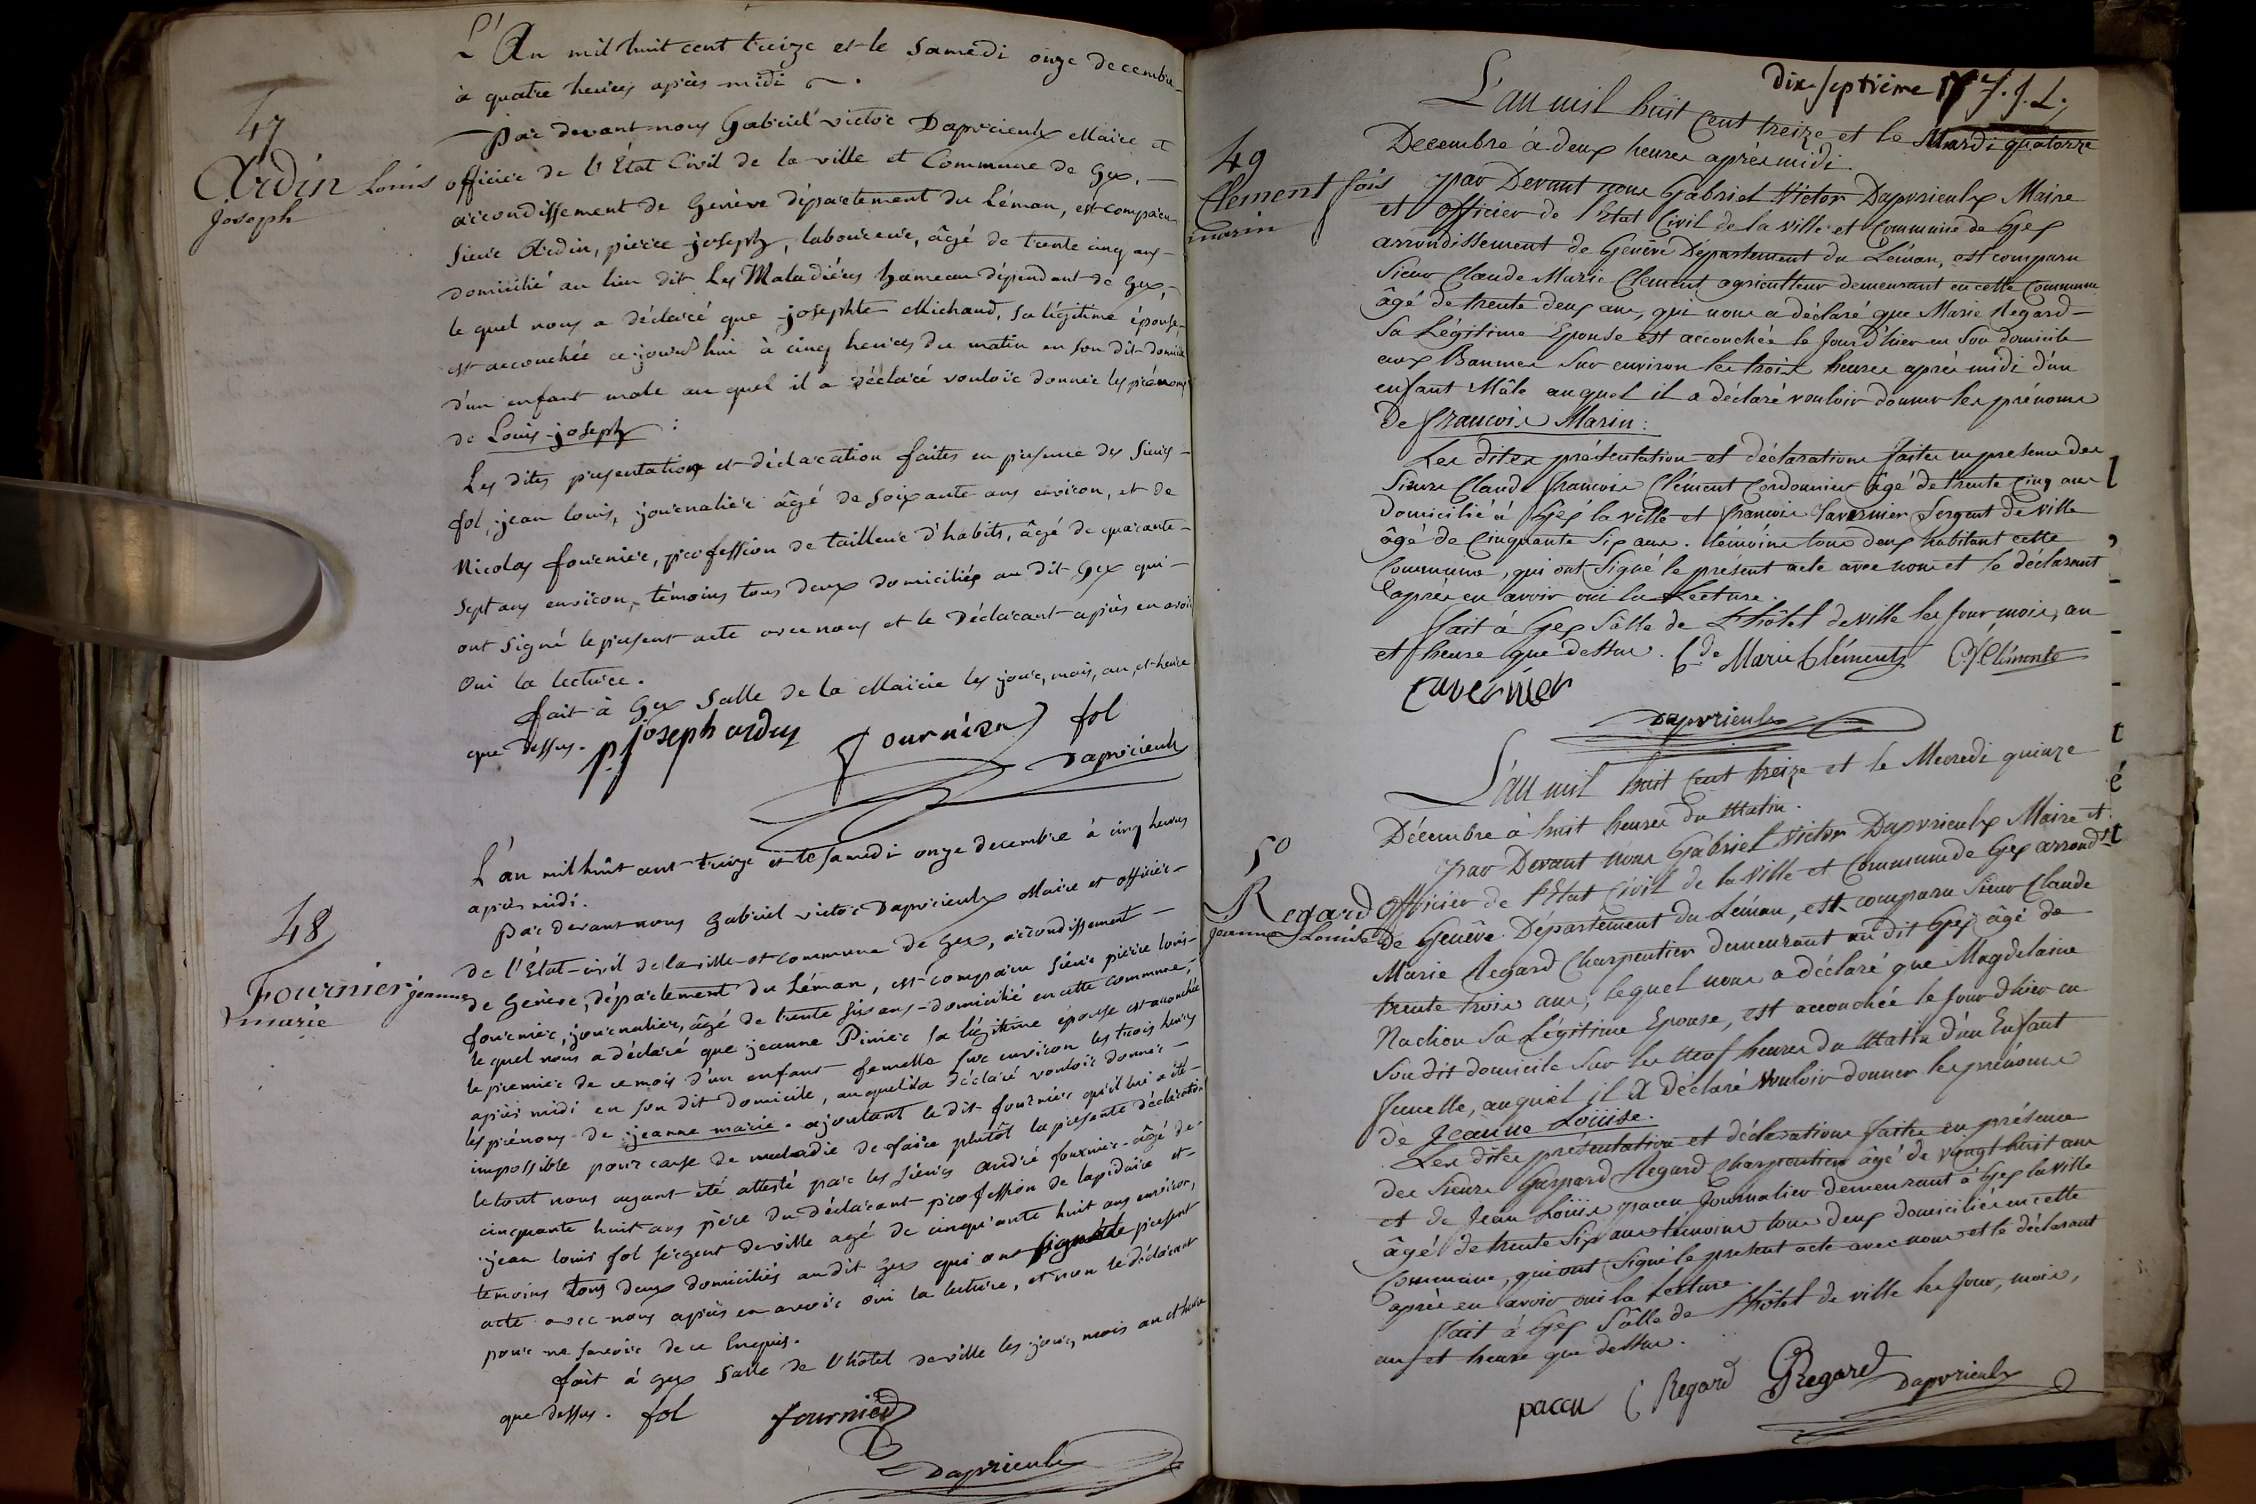 L'An mil huit cent treize et le Samedi onze decembre
à quatre heures après midi
47
Ardin Louis
Joseph
Par devant nous Gabriel victor Dapvrieulx Maire et
officier de l'État Civil de la ville et Commune de Gex,
arrondissement de Genève département du Léman, est comparu
sieur Ardin, pierre joseph, laboureur, âgé de trente cinq ans
domicilié au lieu dit Les Maladières hameau dépendant de Gex,
le quel nous a déclaré que josephte Michaud, sa légitime épouse
est accouchée ce jourd'hui à cinq heures du matin en son dit domicile
d'un enfant male au quel il a déclaré vouloir donner les prénoms
de Louis joseph :
Les dites presentation et déclaration faites en presence des Sieurs
fol, jean louis, journalier âgé de soixante ans environ, et de
Nicolas fournier, profession de tailleur d'habits, âgé de quarante
sept ans environ, témoins tous deux domiciliés au dit Gex qui
ont signé le present acte avec nous et le Déclarant après en avoir
Oui la lecture.
fait à Gex Salle de la Mairie les jour, mois, an, et heure
que dessus. p. joseph ardin fournier fol
Dapvrieulx
L'an mil huit cent treize et le Samedi onze decembre à cinq heures
après midi.
48
Fournier jeanne
marie
Par devant nous Gabriel victor Dapvrieulx Maire et officier
de l'État-civil de la ville et commune de Gex, arrondissement
de Genève, département du Léman, est comparu sieur pierre louis
fournier, journalier, âgé de trente six ans domicilié en cette commune,
le quel nous a déclaré que jeanne Pinier sa légitime epouse est accouchée
le premier de ce mois d'un enfant femelle sur environ les trois heures
après midi en son dit domicile, auquel il a déclaré vouloir donner
les prénoms de jeanne marie. ajoutant le dit fournier qu'il lui a été
impossible pour cause de maladie de faire plutôt la presente déclaration
le tout nous ayant été attesté par les sieurs andré fournier âgé de
cinquante huit ans père du déclarant profession de lapidaire et
jean louis fol sergent de ville agé de cinquante huit ans environ,
temoins tous deux domiciliés au dit Gex qui ont signé le present
acte avec nous après en avoir oui la lecture, et non le déclarant
pour ne savoir de ce Enquis.
fait à Gex Salle de l'hôtel de ville les jour, mois an et heure
que dessus. fol fournier
Dapvrieulx
dix septième 17e J. J. L.
L'an mil huit Cent treize et le Mardi quatorze
Decembre à deux heures après midi.
49
Clement fois
marin
par Devant nous Gabriel Victor Dapvrieulx Maire
et officier de l'Etat Civil de la Ville et Commune de Gex
arrondissement de Genève Département du Léman, est comparu
Sieur Claude Marie Clement agriculteur demeurant en cette Commune
âgé de trente deux ans, qui nous a déclaré que Marie Regard
Sa Légitime Epouse est accouchée le Jour d'hier en Son domicile
aux Bannes Sur environ les trois heures après midi d'un
enfant Mâle auquel il a déclaré vouloir donner les prénoms
de francois Marin :
Les dites présentation et déclarations faites en presence des
Sieurs Claude francois Clément Cordonnier âgé de trente cinq ans
domicilié à Gex la ville et francois Tavernier Sergent de ville
âgé de Cinquante Six ans. témoins tous deux habitant cette
Commune, qui ont Signé le présent acte avec nous et le déclarant
après en avoir oui la Lecture.
fait à Gex Sâlle de L'hôtel de Ville les Jour mois, an
et heure que dessus. Cde Marie Cléments C f Cléments
tavernier
Dapvrieulx
L'an mil huit Cent treize et le Mecredi quinze
Décembre à huit heures du Matin.
50
Regard
jeanne Louise
par Devant nous Gabriel Victor Dapvrieulx Maire et
Officier de l'Etat Civil de la Ville et Commune de Gex arrondt
de Genêve Département du Léman, est comparu Sieur Claude
Marie Regard Charpentier demeurant au dit Gex âgé de
trente trois ans, lequel nous a déclaré que Magdelaine
Nachon Sa Légitime Epouse, est accouchée le Jour d'hier en
Son dit domicile Sur les Neuf heures du Matin d'un Enfant
femelle, auquel il a Déclaré Vouloir donner les prénoms
de Jeanne Louise.
Les dites présentation et déclarations faites en présence
des Sieurs Gaspard Regard Charpentier âgé de vingt huit ans
et de Jean Louis pacou Journalier demeurant à Gex la Ville
âgé de trente Six ans temoins tous deux domiciliés en cette
Commune, qui ont Signé le présent acte avec nous et le déclarant
après en avoir oui la Lecture.
fait à Gex Sâlle de L'hôtel de ville les Jour, mois,
an et heure que dessus.
paccu C Regard G Regard Dapvrieulx